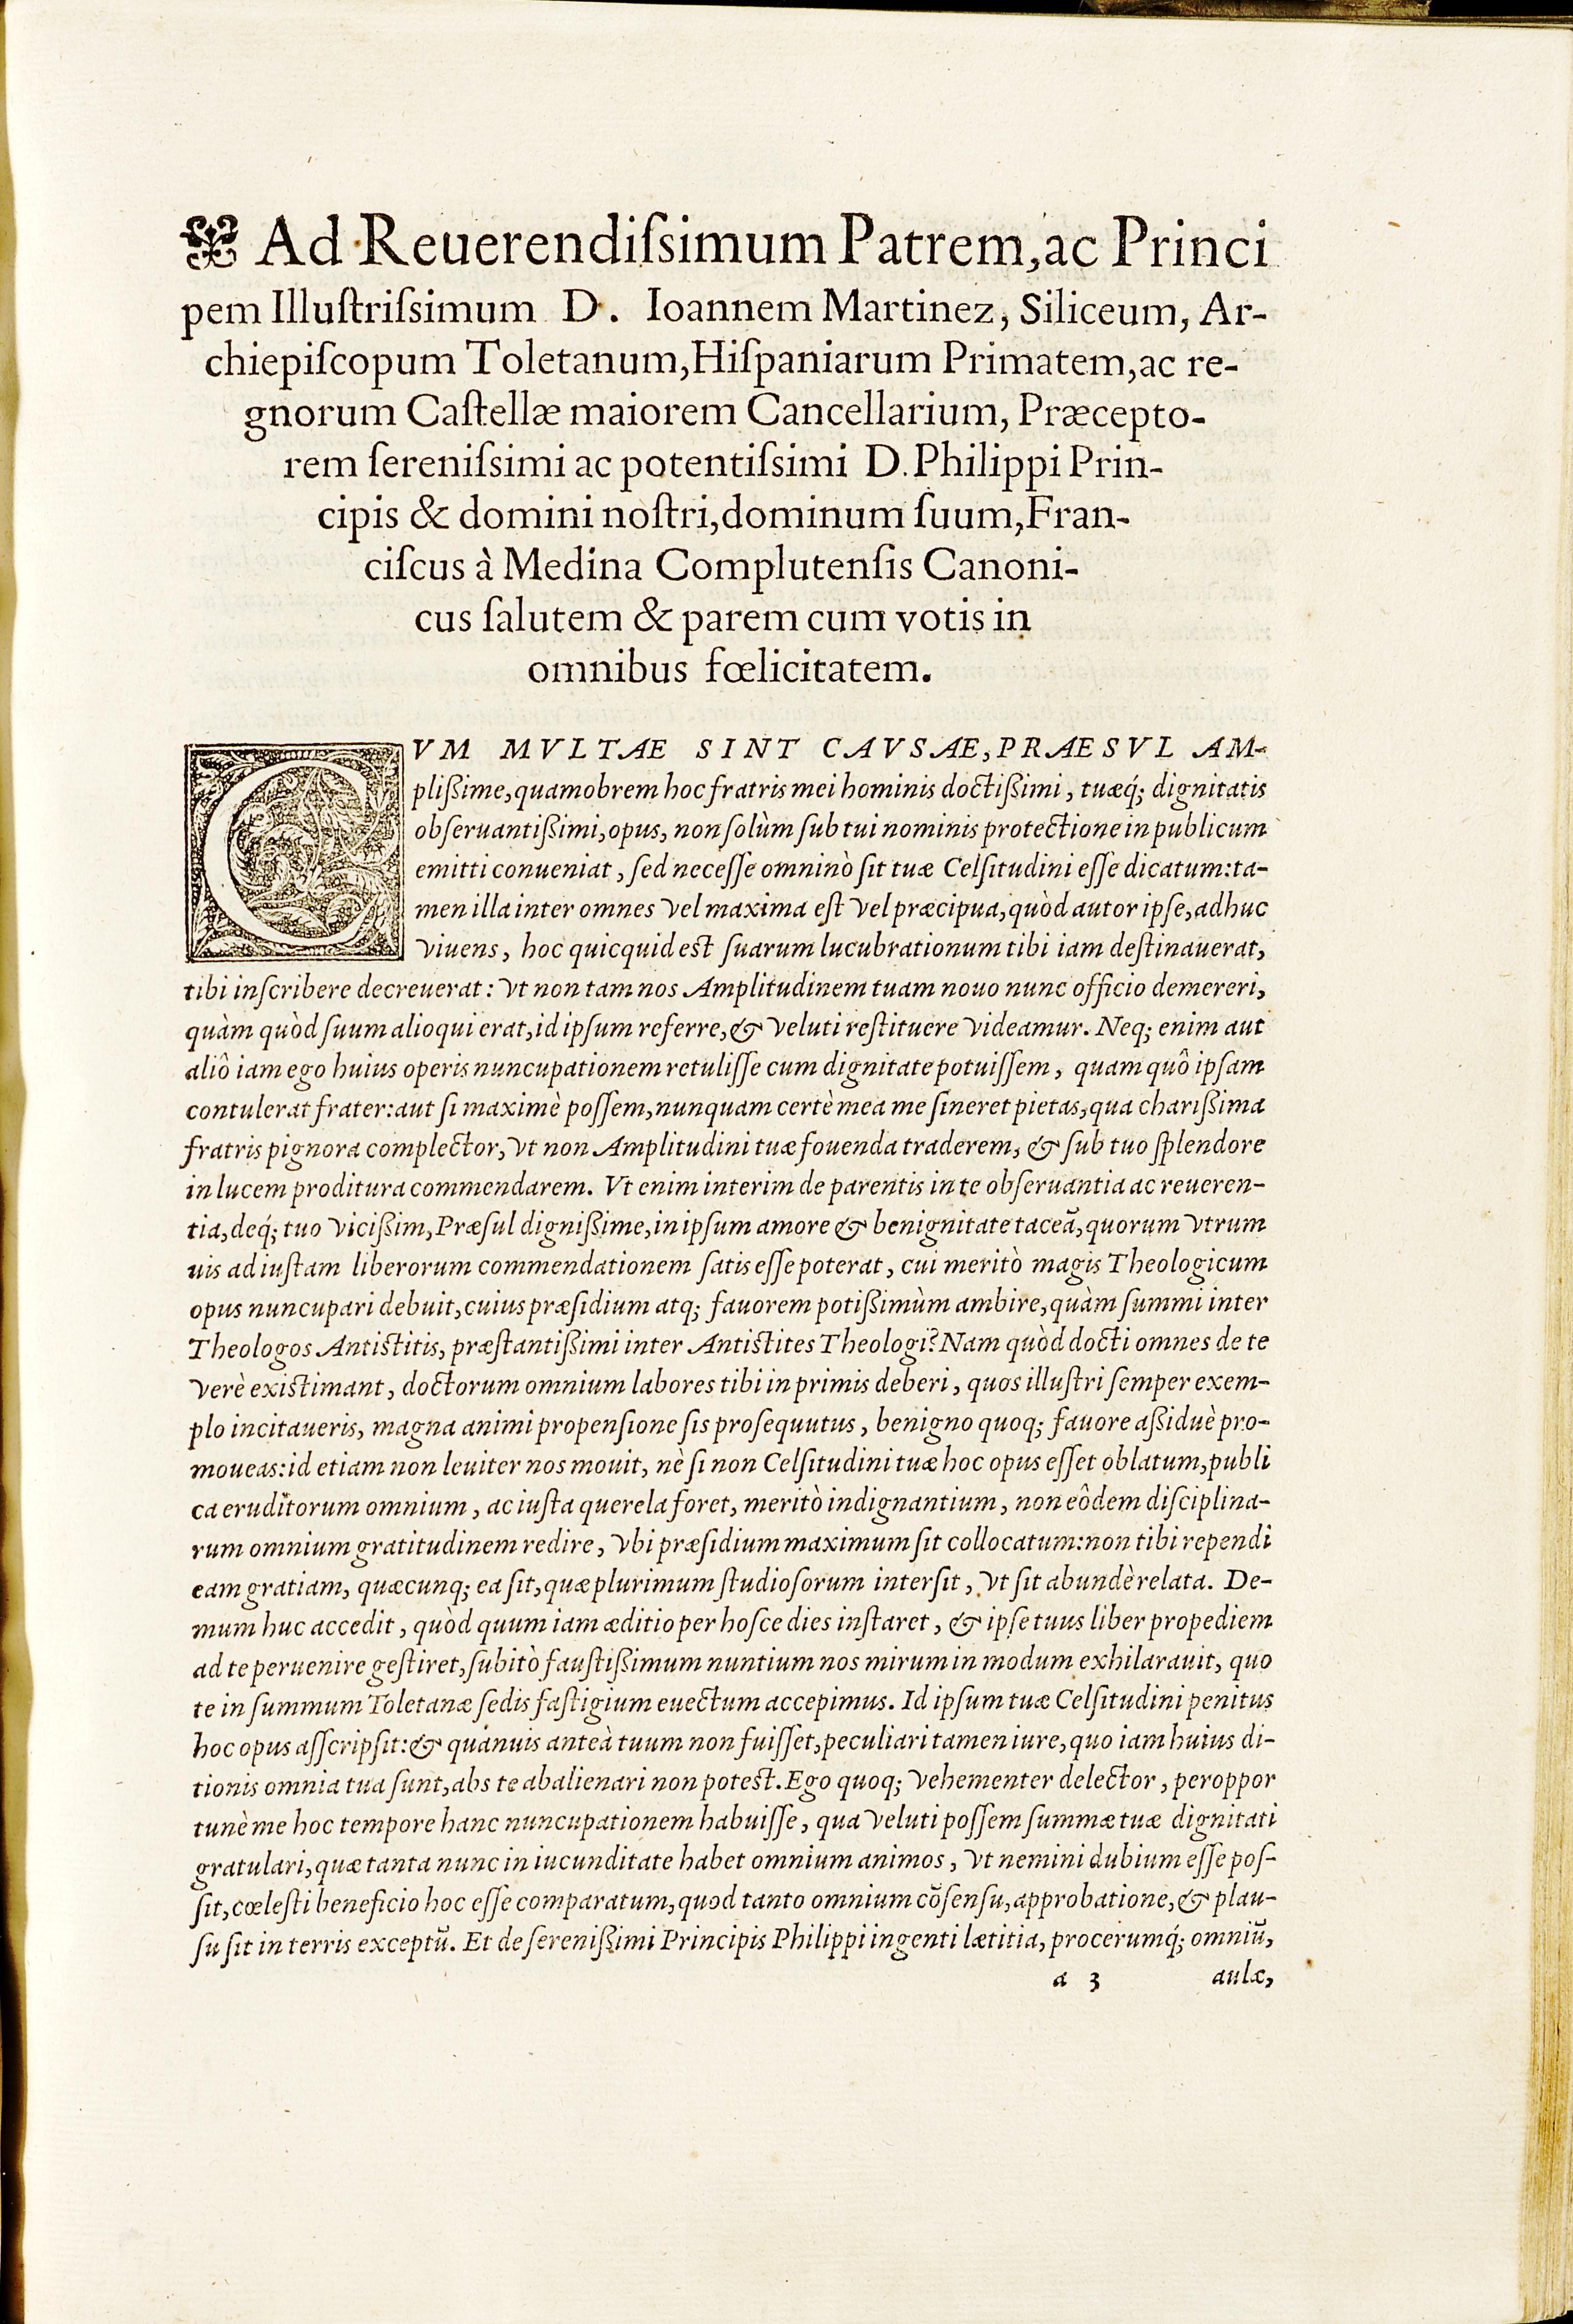 Ad Reuerendiſsimum Patrem, ac Princi
pem Illuſtriſsimum D. Ioannem Martinez, Siliceum, Ar-
chiepiſcopum Toletanum, Hiſpaniarum Primatem, ac re-
gnorum Caſtellæ maiorem Cancellarium, Præcepto-
rem ſereniſsimi ac potentiſsimi D. Philippi Prin-
cipis & domini noſtri, dominum ſuum, Fran-
ciſcus à Medina Complutenſis Canoni-
cus ſalutem & parem cum votis in
omnibus fœlicitatem.
CVM MVLTAE SINT CAVSAE, PRAESVL AM-
plißime, quamobrem hoc fratris mei hominis doctißimi, tuæq́; dignitatis
obſeruantißimi, opus, non ſolùm ſub tui nominis protectione in publicum
emitti conueniat, ſed neceſſe omninò ſit tuæ Celſitudini eſſe dicatum: ta-
men illa inter omnes vel maxima eſt vel præcipua, quòd autor ipſe, adhuc
viuens, hoc quicquid est ſuarum lucubrationum tibi iam deſtinauerat,
tibi inſcribere decreuerat: vt non tam nos Amplitudinem tuam nouo nunc officio demereri,
quàm quòd ſuum alioqui erat, id ipſum referre, & veluti reſtituere videamur. Neq; enim aut
aliô iam ego huius operis nuncupationem retuliſſe cum dignitate potuiſſem, quam quô ipſam
contulerat frater: aut ſi maximè poſſem, nunquam certè mea me ſineret pietas, qua charißima
fratris pignora complector, vt non Amplitudini tuæ fouenda traderem, & ſub tuo ſplendore
in lucem proditura commendarem. Vt enim interim de parentis in te obſeruantia ac reueren-
tia, deq́; tuo vicißim, Præſul dignißime, in ipſum amore & benignitate taceā, quorum vtrum
uis ad iuſtam liberorum commendationem ſatis eſſe poterat, cui meritò magis Theologicum
opus nuncupari debuit, cuius præſidium atq; fauorem potißimùm ambire, quàm ſummi inter
Theologos Antistitis, præſtantißimi inter Antistites Theologi? Nam quòd docti omnes de te
verè existimant, doctorum omnium labores tibi in primis deberi, quos illuſtri ſemper exem-
plo incitaueris, magna animi propenſione ſis proſequutus, benigno quoq; fauore aßiduè pro-
moueas: id etiam non leuiter nos mouit, nè ſi non Celſitudini tuæ hoc opus eſſet oblatum, publi
ca eruditorum omnium, ac iuſta querela foret, meritò indignantium, non eôdem diſciplina-
rum omnium gratitudinem redire, vbi præſidium maximum ſit collocatum: non tibi rependi
eam gratiam, quæcunq; ea ſit, quæ plurimum ſtudioſorum interſit, vt ſit abundè relata. De-
mum huc accedit, quòd quum iam æditio per hoſce dies inſtaret, & ipſe tuus liber propediem
ad te peruenire geſtiret, ſubitò fauſtißimum nuntium nos mirum in modum exhilarauit, quo
te in ſummum Toletanæ ſedis faſtigium euectum accepimus. Id ipſum tuæ Celſitudini penitus
hoc opus aſſcripſit: & quánuis anteà tuum non fuiſſet, peculiari tamen iure, quo iam huius di-
tionis omnia tua ſunt, abs te abalienari non potest. Ego quoq; vehementer delector, peroppor
tunè me hoc tempore hanc nuncupationem habuiſſe, qua veluti poſſem ſummæ tuæ dignitati
gratulari, quæ tanta nunc in iucunditate habet omnium animos, vt nemini dubium eſſe poſ-
ſit, cœleſti beneficio hoc eſſe comparatum, quod tanto omnium cōſenſu, approbatione, & plau-
ſu ſit in terris exceptū. Et de ſerenißimi Principis Philippi ingenti lætitia, procerumq́; omniū,
a 3 aulæ,